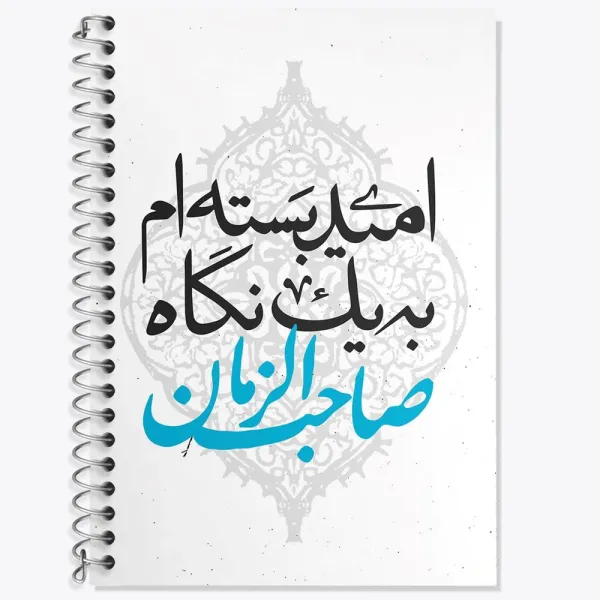 امید بسته‌ام
به یک نگاه
صاحب الزمان